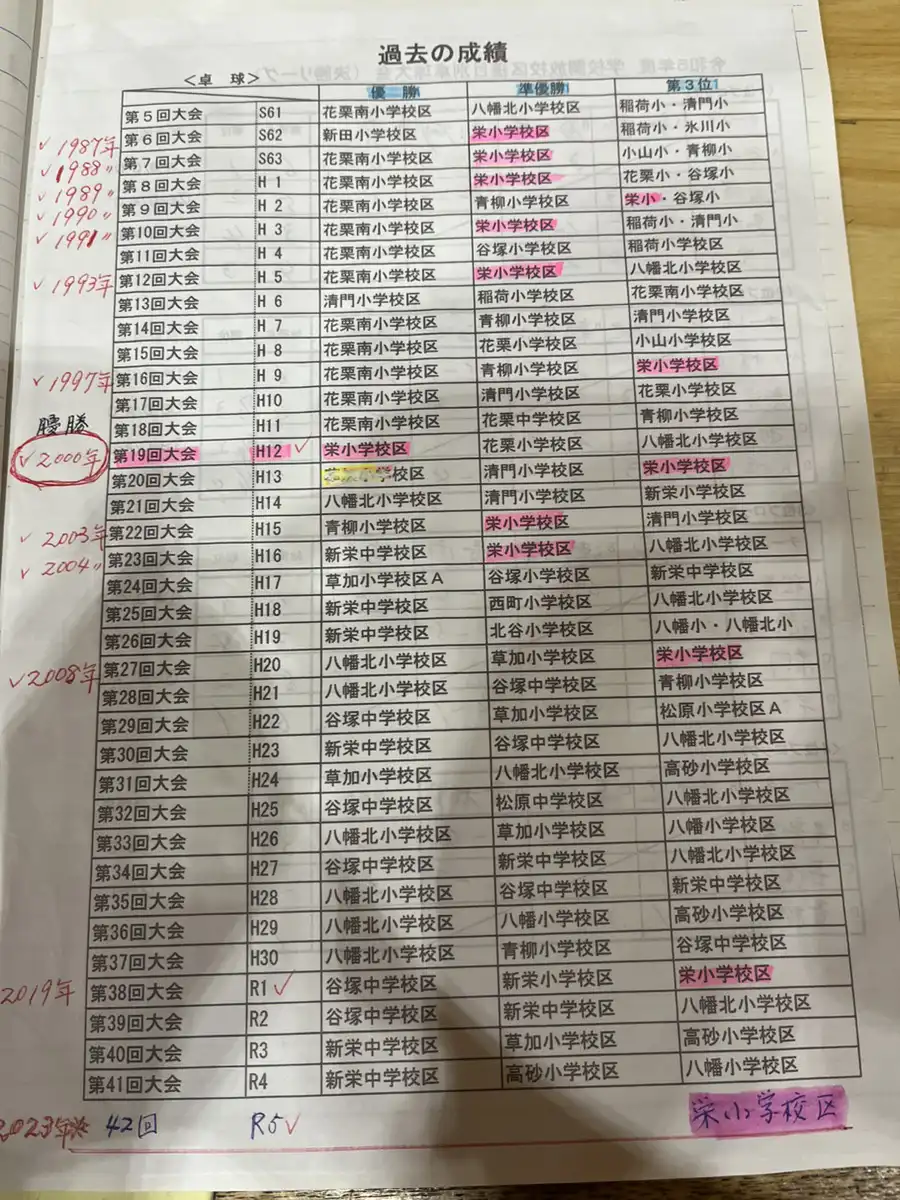 過去の成績
＜卓　球＞
優　勝 準優勝 第３位
第５回大会 S61 花栗南小学校区 八幡北小学校区 稲荷小・清門小
1987年 第６回大会 S62 新田小学校区 栄小学校区 稲荷小・氷川小
1988〃 第７回大会 S63 花栗南小学校区 栄小学校区 小山小・青柳小
1989〃 第８回大会 H 1 花栗南小学校区 栄小学校区 花栗小・谷塚小
1990〃 第９回大会 H 2 花栗南小学校区 青柳小学校区 栄小・谷塚小
1991〃 第10回大会 H 3 花栗南小学校区 栄小学校区 稲荷小・清門小
第11回大会 H 4 花栗南小学校区 谷塚小学校区 稲荷小学校区
1993年 第12回大会 H 5 花栗南小学校区 栄小学校区 八幡北小学校区
第13回大会 H 6 清門小学校区 稲荷小学校区 花栗南小学校区
第14回大会 H 7 花栗南小学校区 青柳小学校区 清門小学校区
第15回大会 H 8 花栗南小学校区 花栗小学校区 小山小学校区
1997年 第16回大会 H 9 花栗南小学校区 青柳小学校区 栄小学校区
第17回大会 H10 花栗南小学校区 清門小学校区 花栗小学校区
優勝 第18回大会 H11 花栗南小学校区 花栗中学校区 青柳小学校区
2000年 第19回大会 H12 栄小学校区 花栗小学校区 八幡北小学校区
第20回大会 H13 校区 清門小学校区 栄小学校区
第21回大会 H14 八幡北小学校区 清門小学校区 新栄小学校区
2003年 第22回大会 H15 青柳小学校区 栄小学校区 清門小学校区
2004〃 第23回大会 H16 新栄中学校区 栄小学校区 八幡北小学校区
第24回大会 H17 草加小学校区Ａ 谷塚小学校区 新栄中学校区
第25回大会 H18 新栄中学校区 西町小学校区 八幡北小学校区
第26回大会 H19 新栄中学校区 北谷小学校区 八幡小・八幡北小
2008年 第27回大会 H20 八幡北小学校区 草加小学校区 栄小学校区
第28回大会 H21 八幡北小学校区 谷塚中学校区 青柳小学校区
第29回大会 H22 谷塚中学校区 草加小学校区 松原小学校区Ａ
第30回大会 H23 新栄中学校区 谷塚中学校区 八幡北小学校区
第31回大会 H24 草加小学校区 八幡北小学校区 高砂小学校区
第32回大会 H25 谷塚中学校区 松原中学校区 八幡北小学校区
第33回大会 H26 八幡北小学校区 草加小学校区 八幡小学校区
第34回大会 H27 谷塚中学校区 新栄中学校区 八幡北小学校区
第35回大会 H28 八幡北小学校区 谷塚中学校区 新栄中学校区
第36回大会 H29 八幡北小学校区 八幡小学校区 高砂小学校区
第37回大会 H30 八幡北小学校区 青柳小学校区 谷塚中学校区
2019年 第38回大会 R1 谷塚中学校区 新栄小学校区 栄小学校区
第39回大会 R2 谷塚中学校区 新栄中学校区 八幡北小学校区
第40回大会 R3 新栄中学校区 草加小学校区 高砂小学校区
第41回大会 R4 新栄中学校区 高砂小学校区 八幡小学校区
2023年 42回 R5 栄小学校区